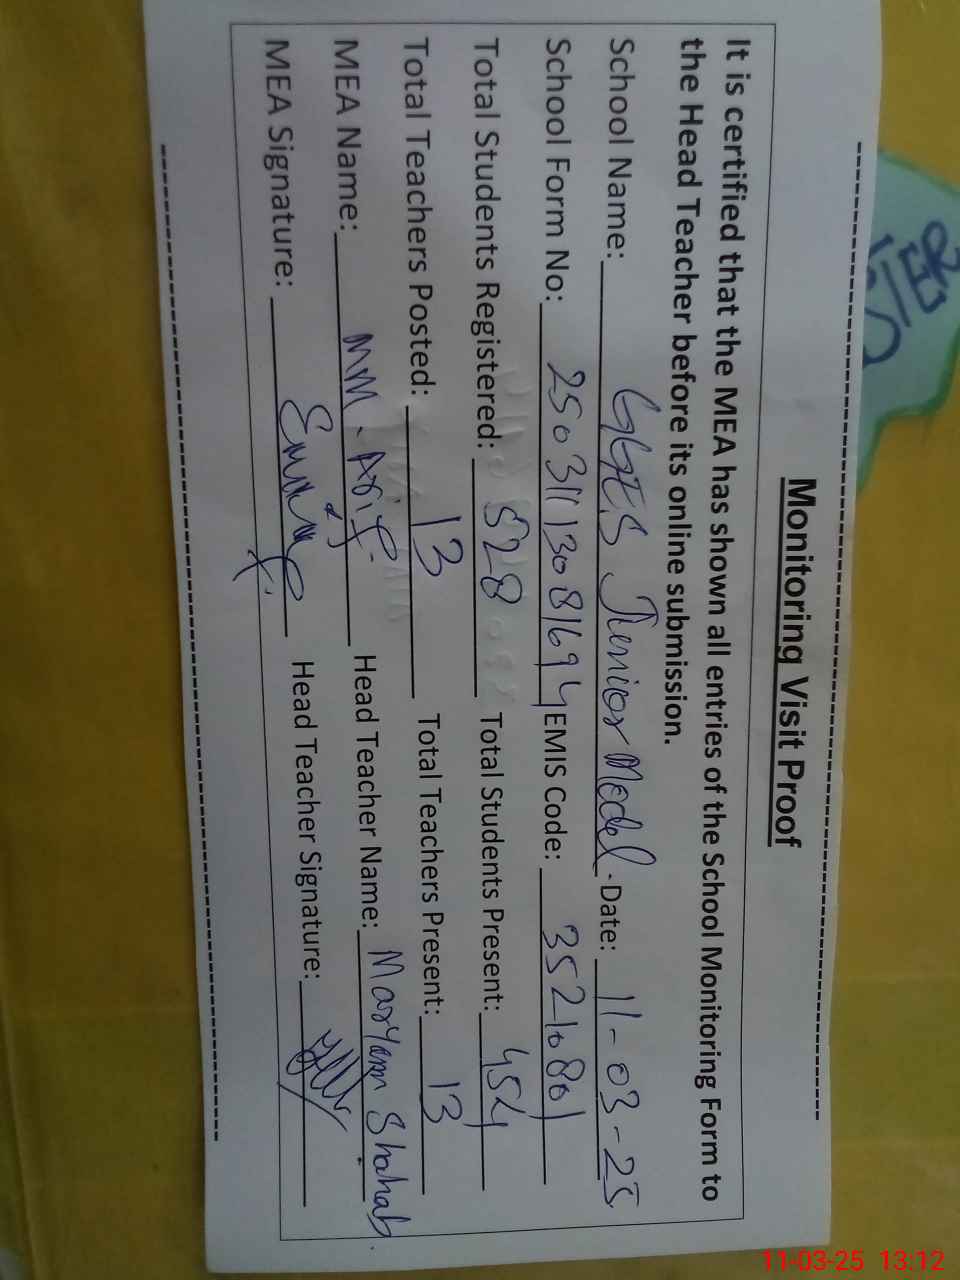 Monitoring Visit Proof
It is certified that the MEA has shown all entries of the School Monitoring Form to
the Head Teacher before its online submission.
School Name: GGES Junior Model - Date: 11-03-25
School Form No: 25031113081694 EMIS Code: 35210801
Total Students Registered: 528 Total Students Present: 454
Total Teachers Posted: 13 Total Teachers Present: 13
MEA Name: MM. Asif Head Teacher Name: Maryam Shahab
MEA Signature: Head Teacher Signature:
11-03-25 13:12